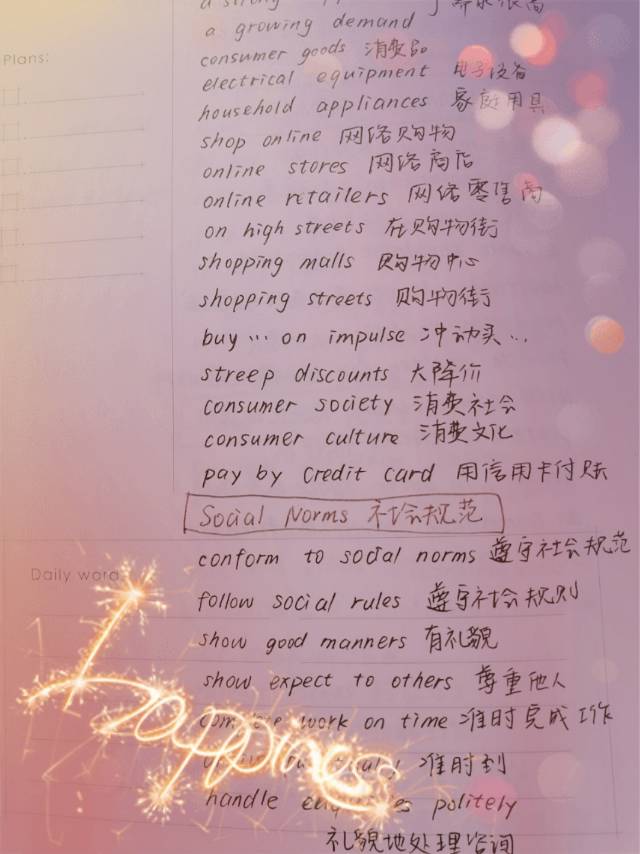 a strong
a growing demand
Plans:
consumer goods 消费品
electrical equipment 电子设备
household appliances 家庭用具
shop online 网络购物
online stores 网络商店
online retailers 网络零售商
on high streets 在购物街
shopping malls 购物中心
shopping streets 购物街
buy … on impulse 冲动买…
streep discounts 大降价
consumer society 消费社会
consumer culture 消费文化
pay by credit card 用信用卡付账
Social Norms 社会规范
conform to social norms 遵守社会规范
Daily word
follow social rules 遵守社会规则
show good manners 有礼貌
show expect to others 尊重他人
complete work on time 准时完成工作
happiness
准时到
handle enquiries politely
礼貌地处理咨询